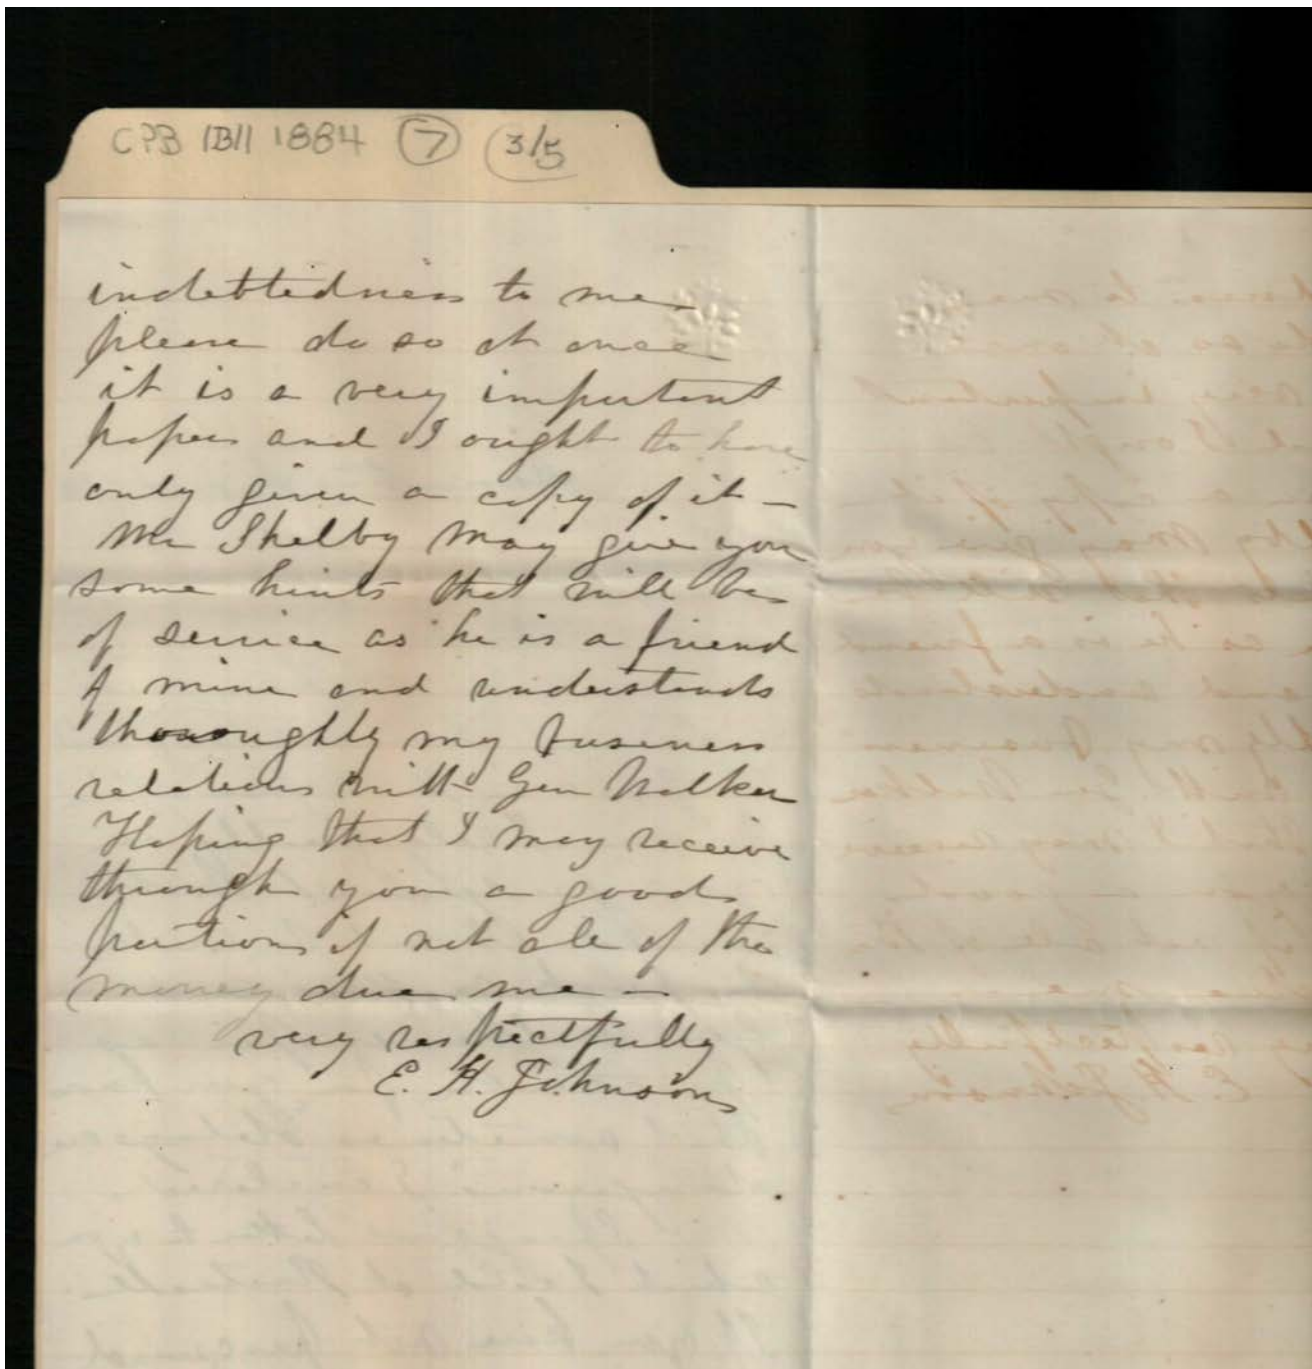 CPB 1B11 1884 7 3/5
indebtedness to me
please do so at once
it is a very important
paper and I ought to have
only given a copy of it —
Mr Shelby may give you
some hints that will be
of service as he is a friend
of mine and understands
thoroughly my business
relations with Gen Walker
Hoping that I may receive
through you a good
portion if not all of the
money due me —
very respectfully
E. H. Johnson